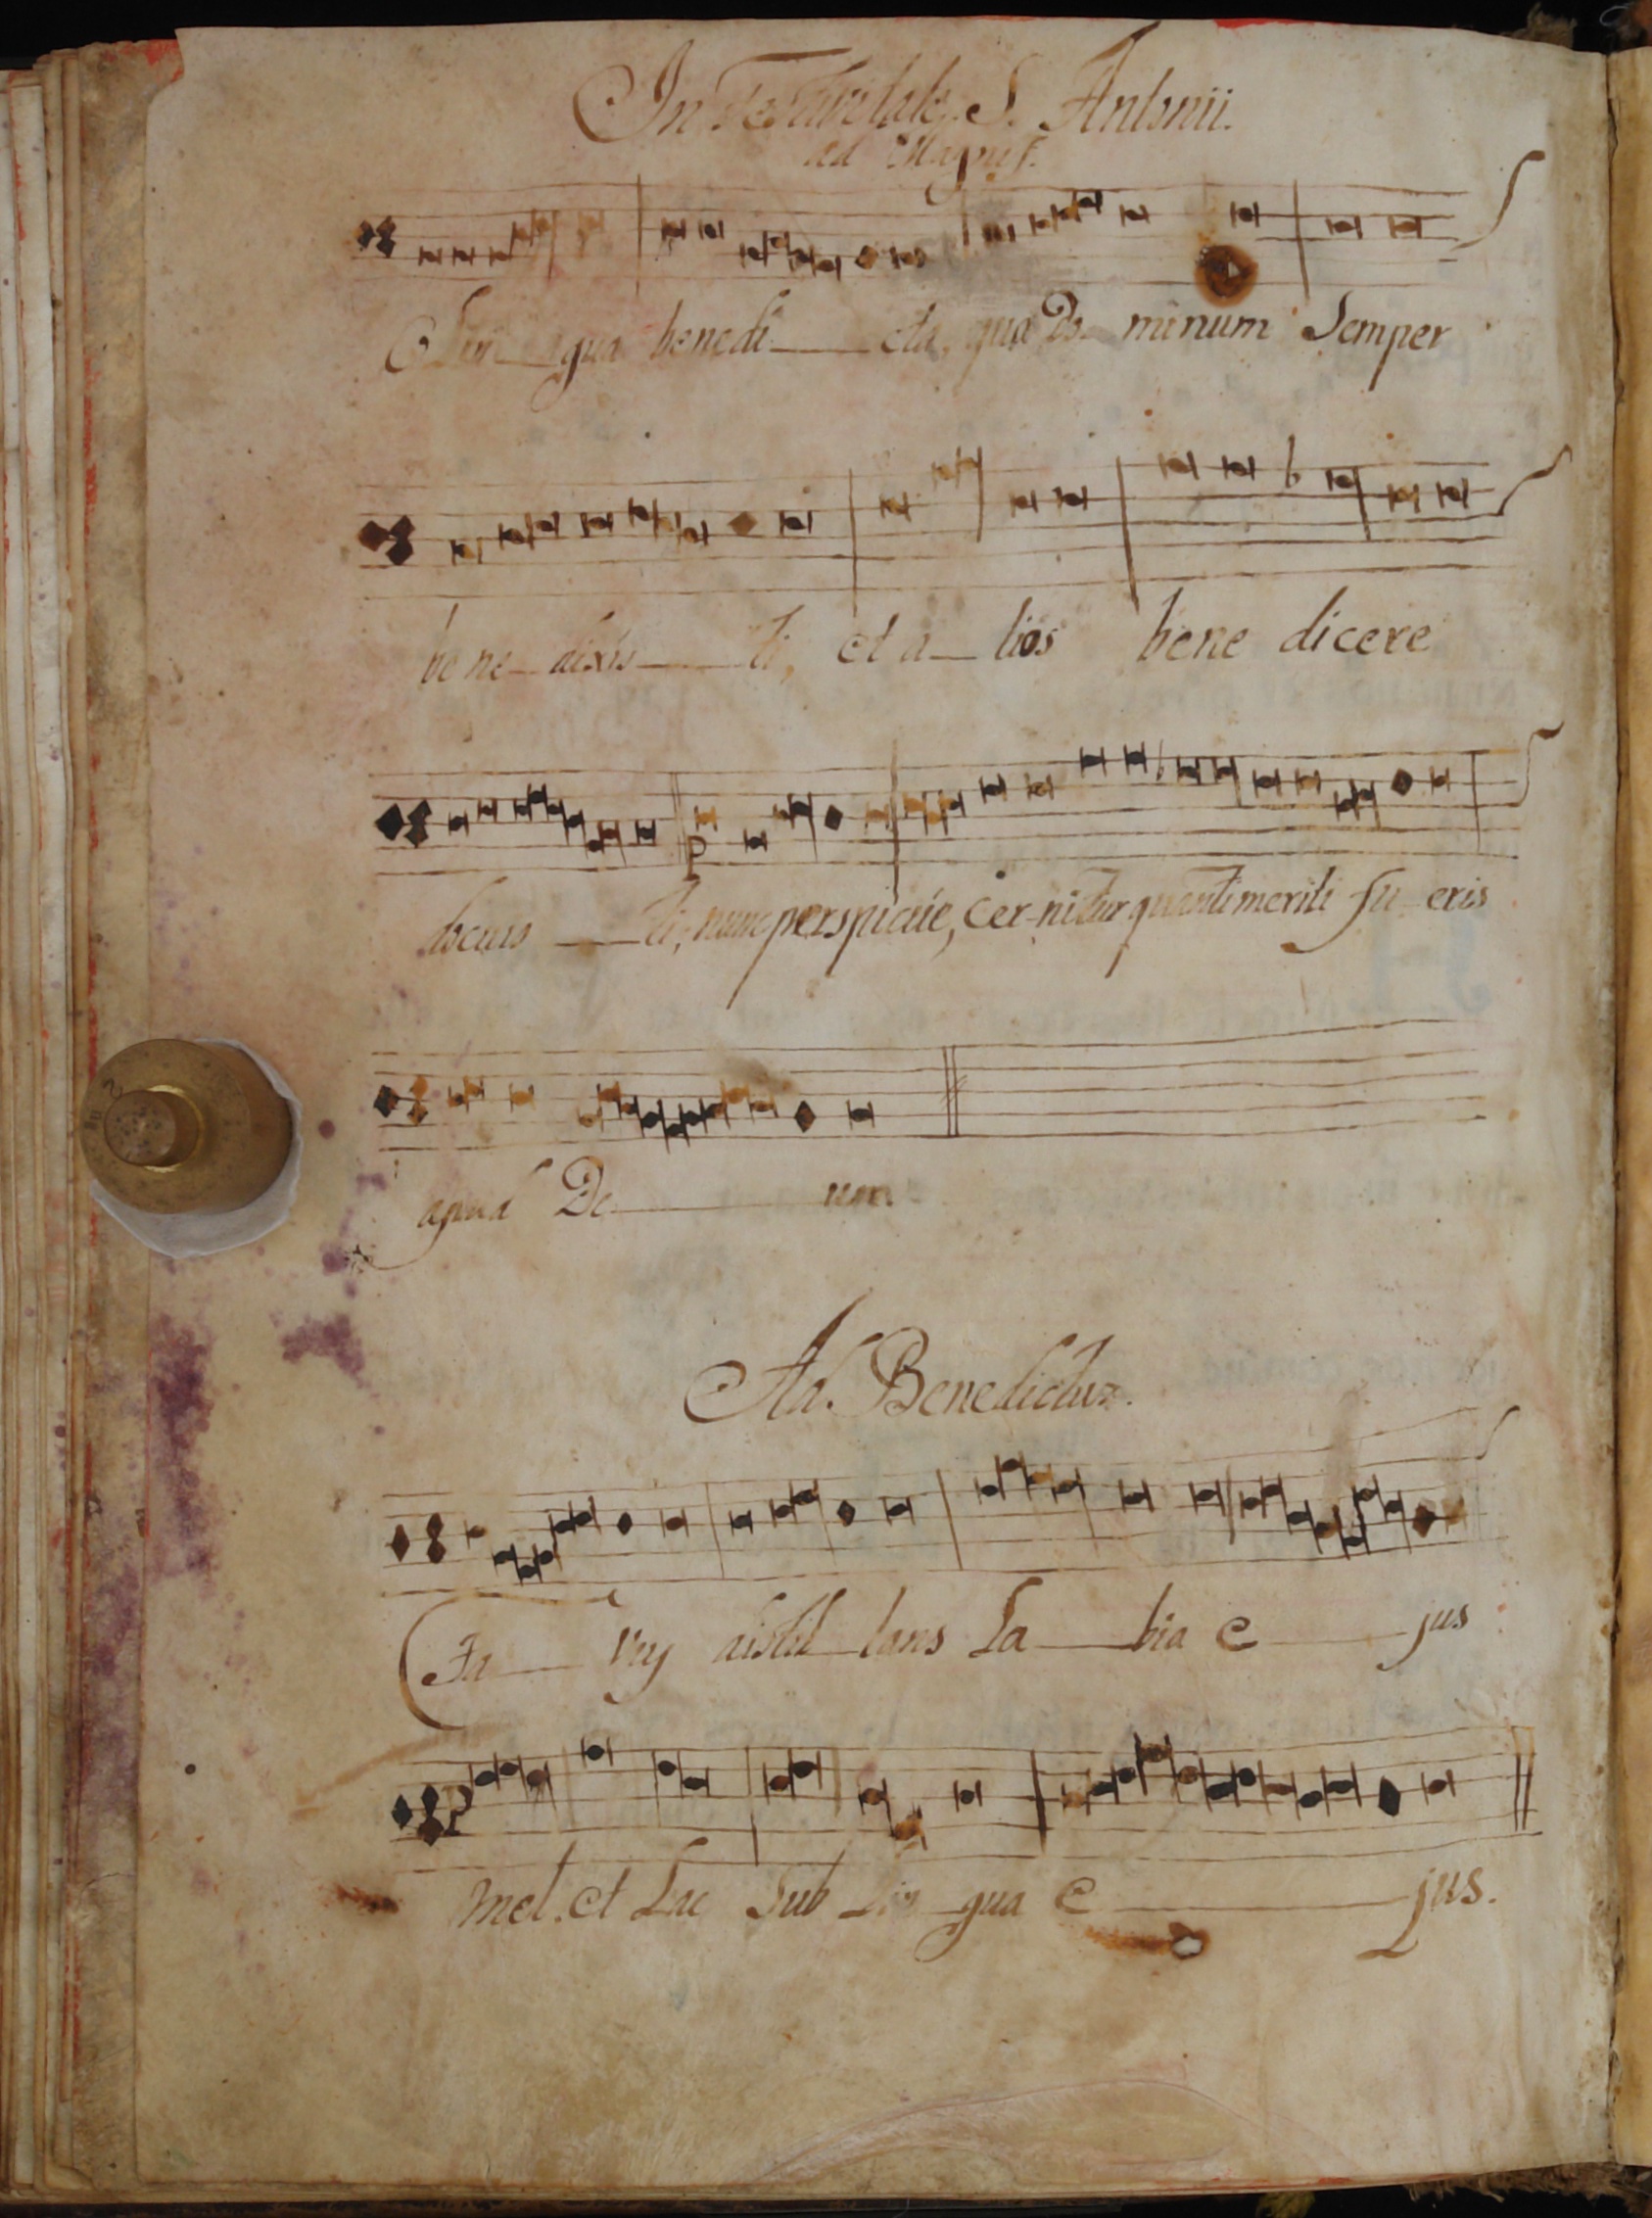 In Festivitate S. Antonii.
ad Magnif.
Lin_gua benedi___cta, quæ Do_minum Semper
bene_dixis___ti, et a_lios bene dicere
docuis___ti, nunc perspicue, Cer-nitur quanti meriti fu_eris
apud De___um.
Ad. Benedictus.
Fa___vus distil_lans La___bia e___jus
mel. et Lac Sub Lin_gua e___jus.